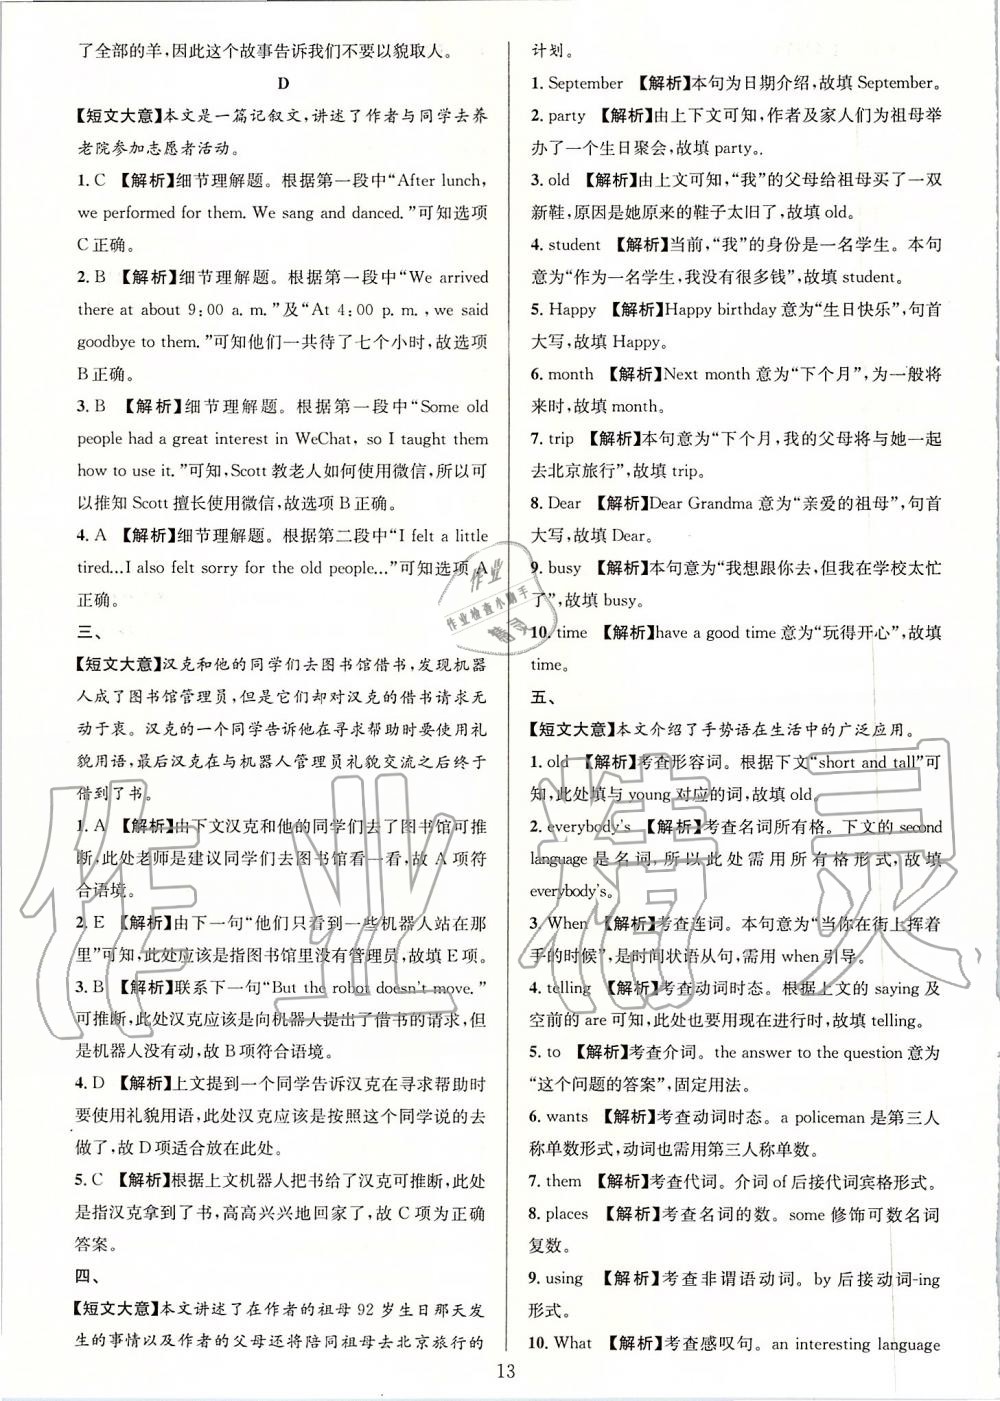 了全部的羊,因此这个故事告诉我们不要以貌取人。
D
【短文大意】本文是一篇记叙文,讲述了作者与同学去养
老院参加志愿者活动。
1. C 【解析】细节理解题。根据第一段中“After lunch,
we performed for them. We sang and danced.”可知选项
C正确。
2. B 【解析】细节理解题。根据第一段中“We arrived
there at about 9:00 a. m.”及“At 4:00 p. m. , we said
goodbye to them.”可知他们一共待了七个小时,故选项
B正确。
3. B 【解析】细节理解题。根据第一段中“Some old
people had a great interest in WeChat, so I taught them
how to use it.”可知,Scott教老人如何使用微信,所以可
以推知Scott擅长使用微信,故选项B正确。
4. A 【解析】细节理解题。根据第二段中“I felt a little
tired...I also felt sorry for the old people...”可知选项A
正确。
三、
【短文大意】汉克和他的同学们去图书馆借书,发现机器
人成了图书馆管理员,但是它们却对汉克的借书请求无
动于衷。汉克的一个同学告诉他在寻求帮助时要使用礼
貌用语,最后汉克在与机器人管理员礼貌交流之后终于
借到了书。
1. A 【解析】由下文汉克和他的同学们去了图书馆可推
断,此处老师是建议同学们去图书馆看一看,故A项符
合语境。
2. E 【解析】由下一句“他们只看到一些机器人站在那
里”可知,此处应该是指图书馆里没有管理员,故填E项。
3. B 【解析】联系下一句“But the robot doesn't move.”
可推断,此处汉克应该是向机器人提出了借书的请求,但
是机器人没有动,故B项符合语境。
4. D 【解析】上文提到一个同学告诉汉克在寻求帮助时
要使用礼貌用语,此处汉克应该是按照这个同学说的去
做了,故D项适合放在此处。
5. C 【解析】根据上文机器人把书给了汉克可推断,此处
是指汉克拿到了书,高高兴兴地回家了,故C项为正确
答案。
四、
【短文大意】本文讲述了在作者的祖母92岁生日那天发
生的事情以及作者的父母还将陪同祖母去北京旅行的
计划。
1. September 【解析】本句为日期介绍,故填September。
2. party 【解析】由上下文可知,作者及家人们为祖母举
办了一个生日聚会,故填party。.
3. old 【解析】由上文可知,“我”的父母给祖母买了一双
新鞋,原因是她原来的鞋子太旧了,故填old。
4. student 【解析】当前,“我”的身份是一名学生。本句
意为“作为一名学生,我没有很多钱”,故填student。
5. Happy 【解析】Happy birthday意为“生日快乐”,句首
大写,故填Happy。
6. month 【解析】Next month意为“下个月”,为一般将
来时,故填month。
7. trip 【解析】本句意为“下个月,我的父母将与她一起
去北京旅行”,故填trip。
8. Dear 【解析】Dear Grandma意为“亲爱的祖母”,句首
大写,故填Dear。
9. busy 【解析】本句意为“我想跟你去,但我在学校太忙
了”,故填busy。
10. time 【解析】have a good time意为“玩得开心”,故填
time。
五、
【短文大意】本文介绍了手势语在生活中的广泛应用。
1. old 【解析】考查形容词。根据下文“short and tall”可
知,此处填与young对应的词,故填old。
2. everybody's 【解析】考查名词所有格。下文的second
language是名词,所以此处需用所有格形式,故填
everybody's。
3. When 【解析】考查连词。本句意为“当你在街上挥着
手的时候”,是时间状语从句,需用when引导。
4. telling 【解析】考查动词时态。根据上文的saying及
空前的are可知,此处也要用现在进行时,故填telling。
5. to 【解析】考查介词。the answer to the question意为
“这个问题的答案”,固定用法。
6. wants 【解析】考查动词时态。a policeman是第三人
称单数形式,动词也需用第三人称单数。
7. them 【解析】考查代词。介词of后接代词宾格形式。
8. places 【解析】考查名词的数。some修饰可数名词
复数。
9. using 【解析】考查非谓语动词。by后接动词-ing
形式。
10. What 【解析】考查感叹句。an interesting language
13
作业
作业检查小助手
精灵
作业精灵